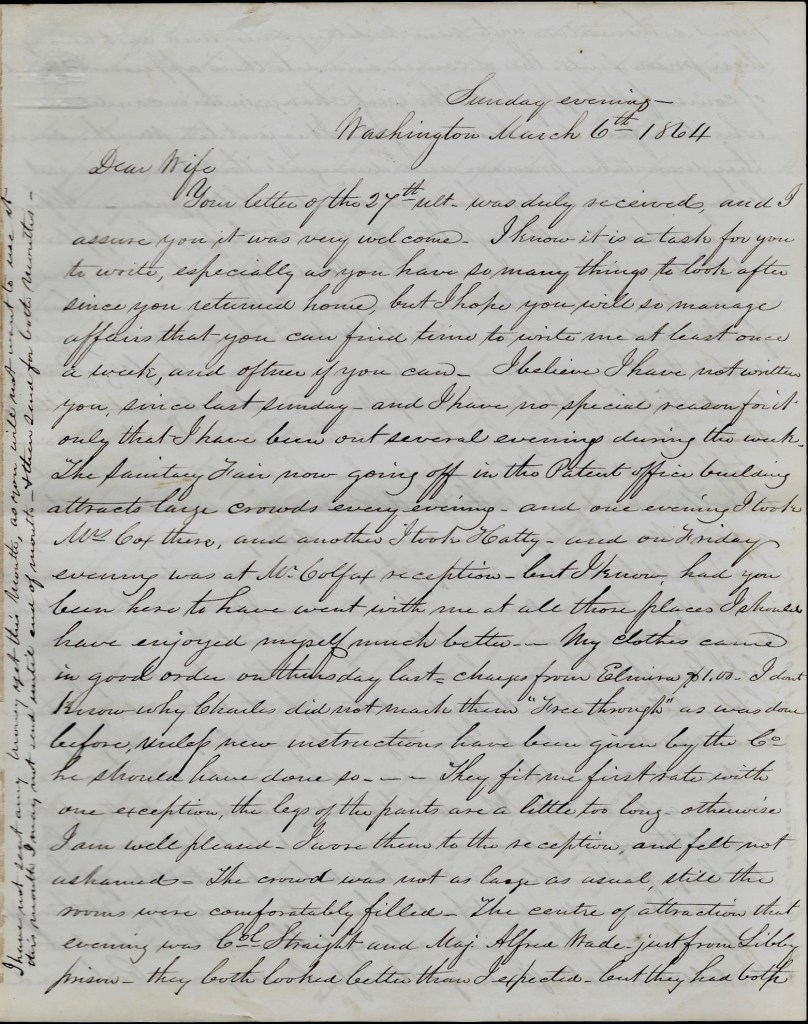 Sunday evening -
Washington March 6th 1864
Dear Wife
Your letter of the 27th ult - was duly received, and I
assure you it was very welcome - I know it is a task for you
to write, especially as you have so many things to look after
since you returned home, but I hope you will so manage
affairs that you can find time to write me at least once
a week, and oftner if you can - I believe I have not written
you, since last sunday - and I have no special reason for it
only that I have been out several evenings during the week -
The Sanitary Fair now going off in the Patent office building
attracts large crowds every evening - and one evening I took
Mrs Cox there, and another I took Hatty - and on Friday
evening was at Mr Colfax reception - but I know, had you
been here to have went with me at all those places I should
have enjoyed myself much better - - My clothes came
in good order on thursday last = charges from Elmira $1.00 - I dont
know why Charles did not mark them "Free through" as was done
before, unless new instructions have been given by the Co
he should have done so - - - They fit me first rate with
one exception, the legs of the pants are a little too long - otherwise
I am well pleased - I wore them to the reception, and felt not
ashamed = The crowd was not as large as usual, still the
rooms were comfortably filled - The centre of attraction that
evening was Col Straight and Maj Alfred Wade - just from Libby
prison - they both looked better than I expected - but they had both
I have not sent any money yet this month, as you will not want to use it
this month I may not send until end of month - & then send for both months -